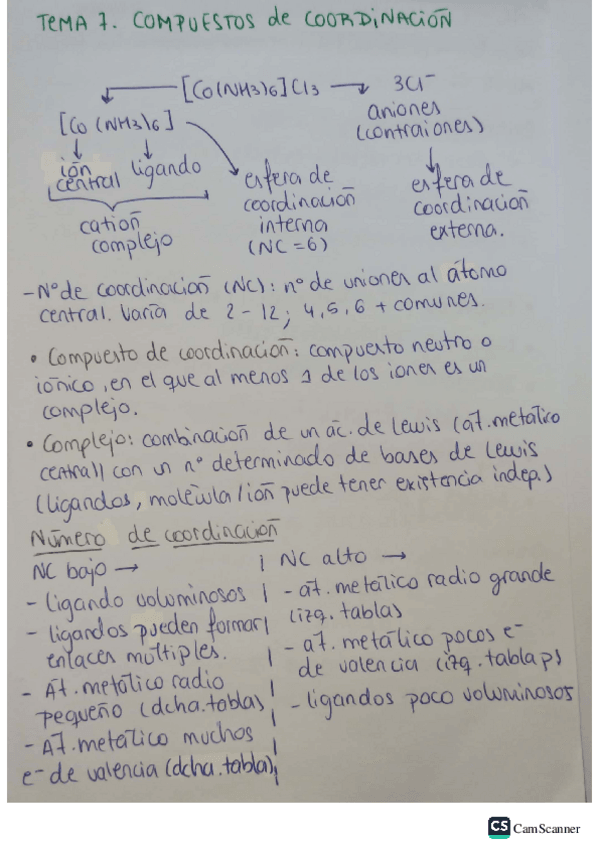 TEMA 7. COMPUESTOS de COORDINACIÓN
[Co(NH3)6]Cl3 → 3Cl⁻
aniones
(contraiones)
[Co(NH3)6]
ión central
ligando
catión
complejo
esfera de
coordinación
interna
(NC=6)
esfera de
coordinación
externa.
- Nº de coordinación (NC): nº de uniones al átomo
central. Varía de 2-12; 4,5,6 + comunes.
• Compuesto de coordinación: compuesto neutro o
iónico, en el que al menos 1 de los iones es un
complejo.
• Complejo: combinación de un ác. de Lewis (át. metálico
central) con un nº determinado de bases de Lewis
(ligandos, molécula/ión puede tener existencia indep.)
Número de coordinación
NC bajo →
- ligando voluminosos
- ligandos pueden formar
enlaces múltiples.
- Át. metálico radio
pequeño (dcha. tabla)
- Át. metálico muchos
e⁻ de valencia (dcha. tabla)
NC alto →
- át. metálico radio grande
(izq. tabla)
- át. metálico pocos e⁻
de valencia (izq. tabla p)
- ligandos poco voluminosos
CS CamScanner